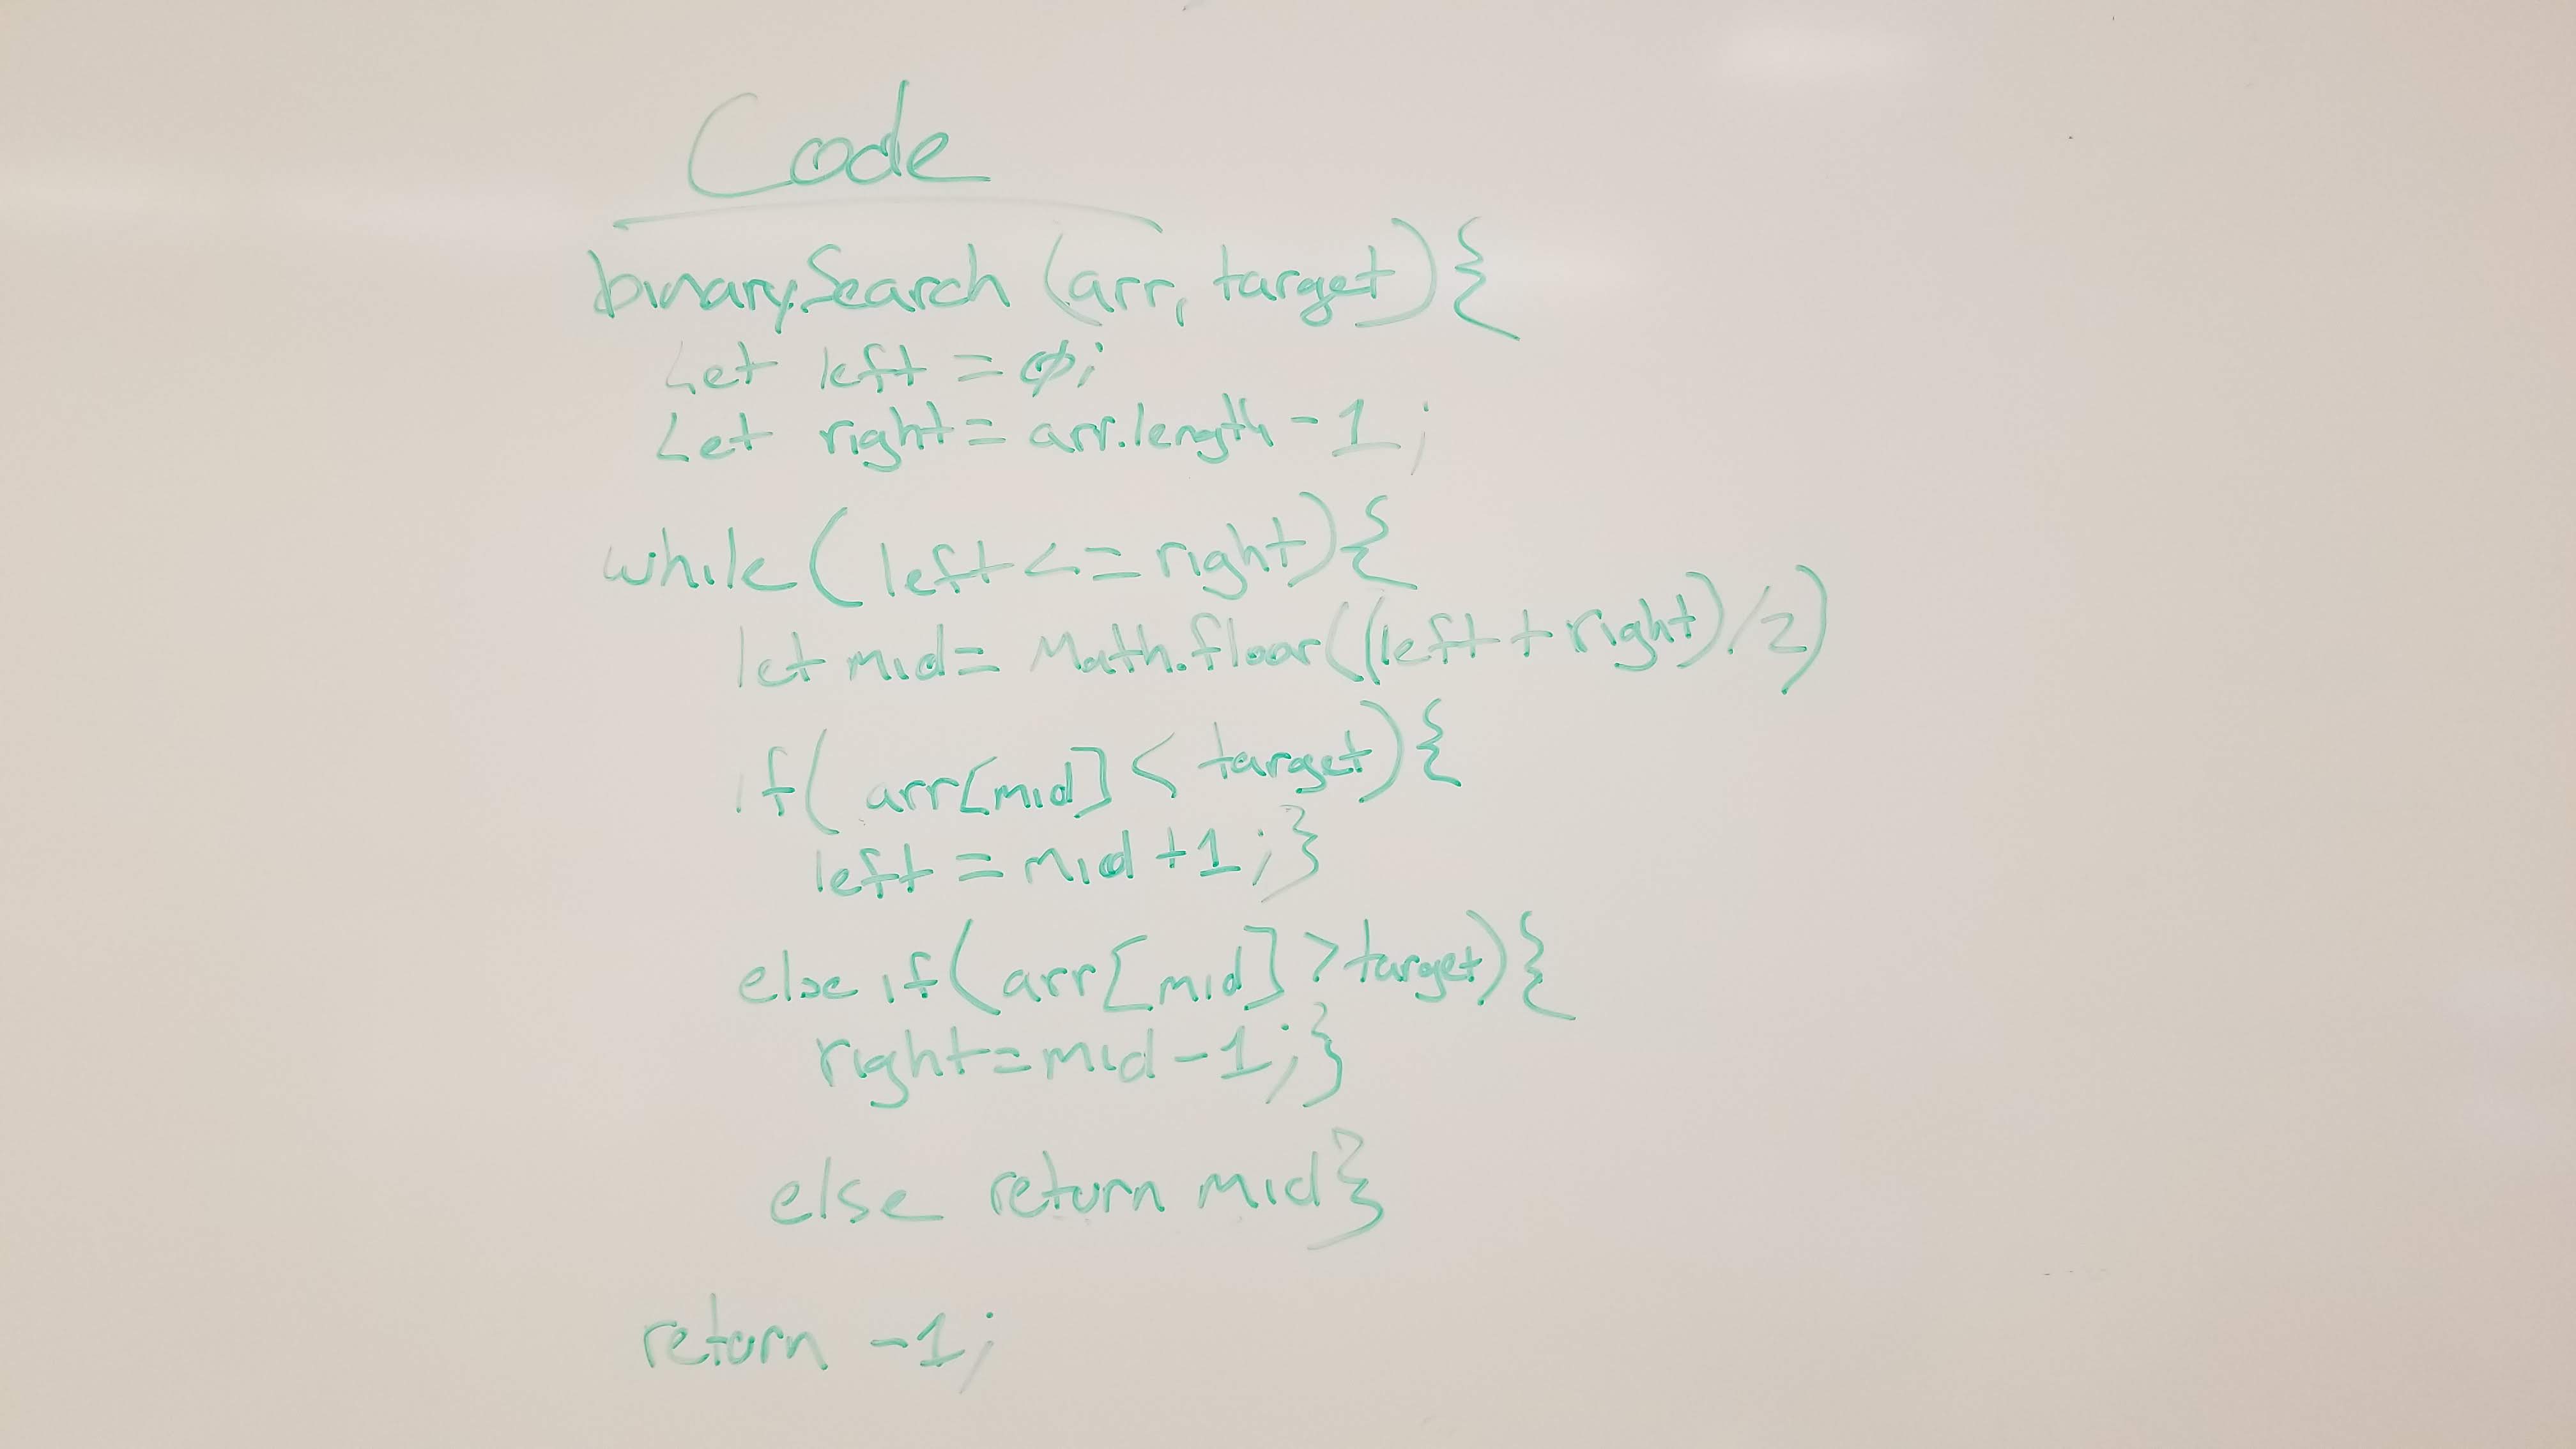 Code
binarySearch (arr, target){
Let left = 0;
Let right = arr.length - 1;
while (left <= right){
let mid = Math.floor((left + right)/2)
if( arr[mid] < target){
left = mid +1;}
else if (arr[mid] > target){
right = mid - 1;}
else return mid}
return -1;